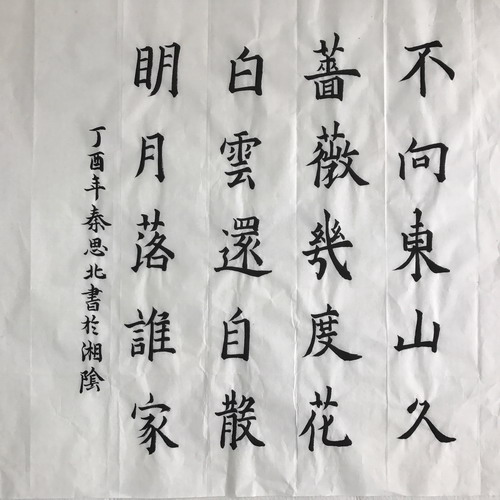 不向東山久
薔薇幾度花
白雲還自散
明月落誰家
丁酉年秦思北書於湘陰